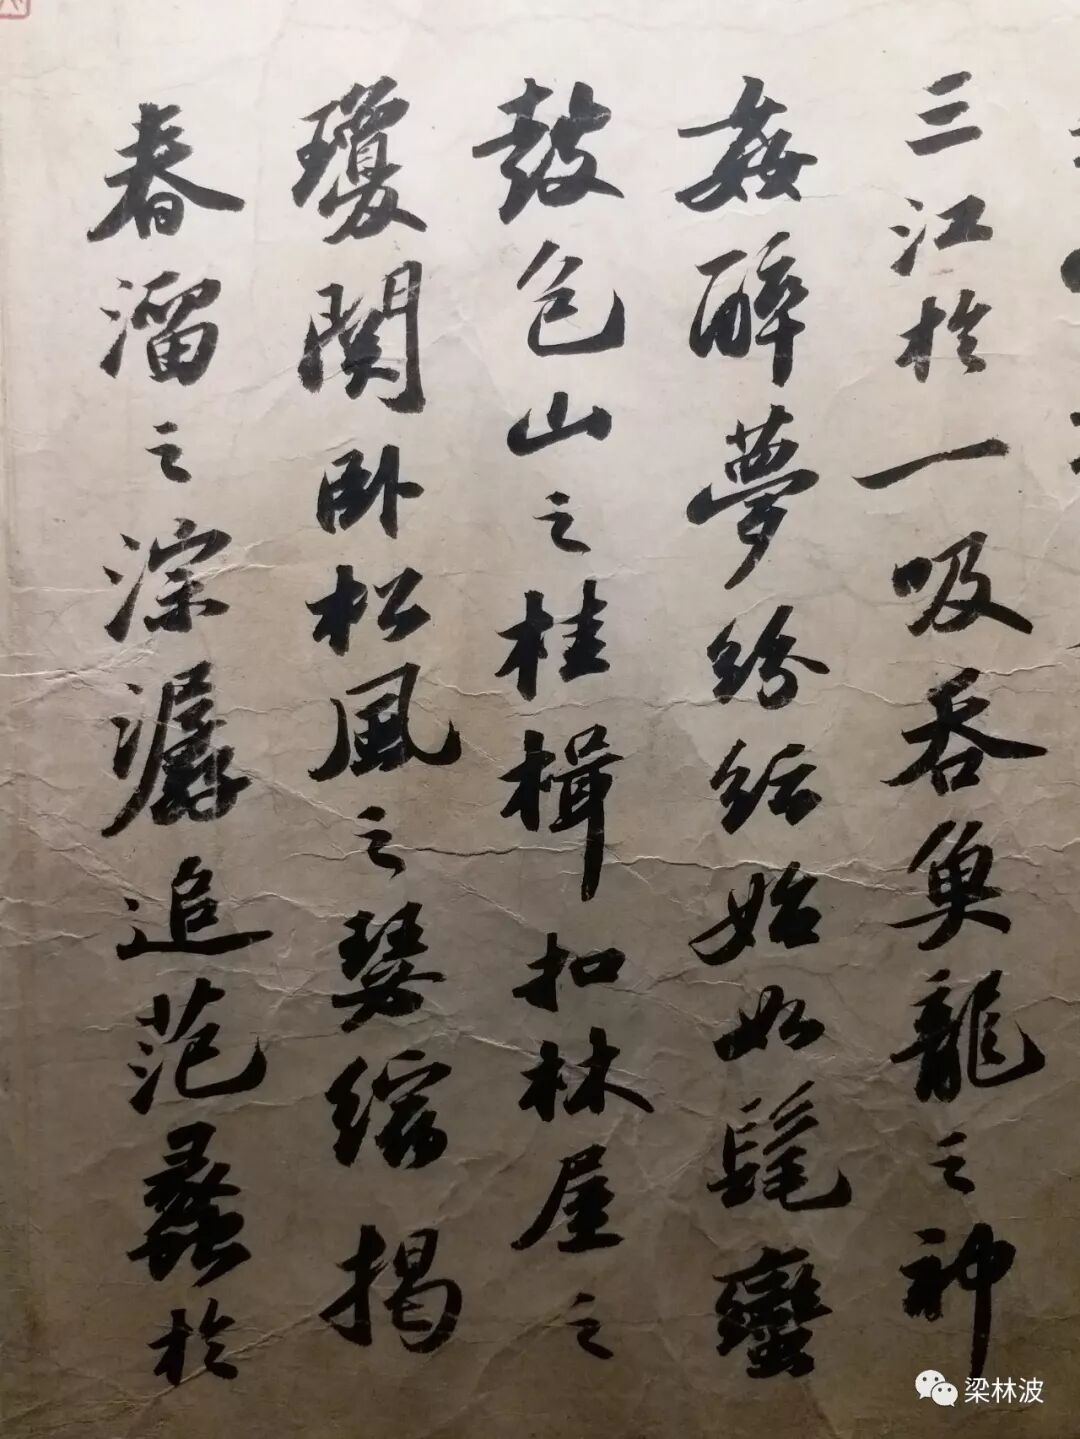 三江於一吸吞魚龍之神
姦醉夢紛紜始如髦蠻
鼓包山之桂楫扣林屋之
瓊關卧松風之瑟縮揭
春溜之淙潺追范蠡於
梁林波